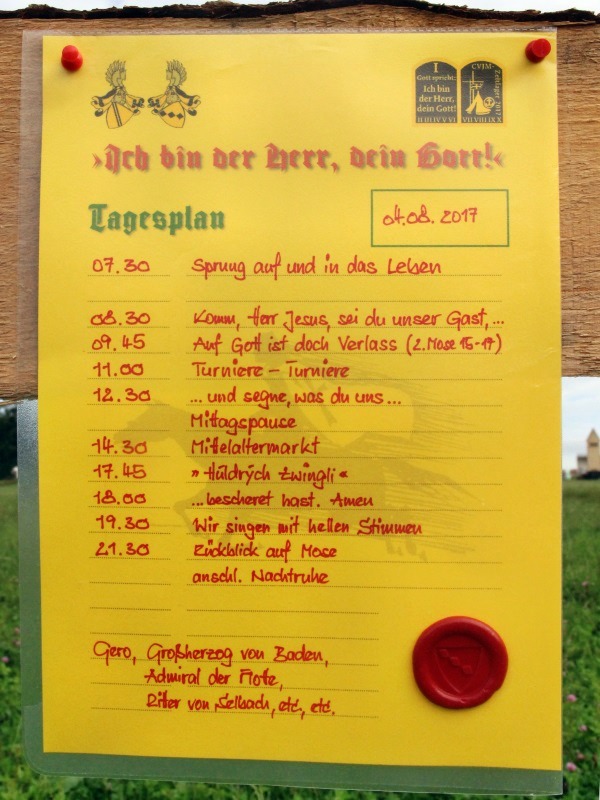 I
Gott spricht:
Ich bin
der Herr,
dein Gott!
II III IV V VI
CVJM-
Zeltlager 2017
VII VIII IX X
›Ich bin der Herr, dein Gott!‹
Tagesplan
04.08. 2017
07.30 Sprung auf und in das Leben
08.30 Komm, Herr Jesus, sei du unser Gast,...
09.45 Auf Gott ist doch Verlass (2. Mose 15-17)
11.00 Turniere – Turniere
12.30 ... und segne, was du uns ...
Mittagspause
14.30 Mittelaltermarkt
17.45 »Huldrÿch Zwingli«
18.00 ...bescheret hast. Amen
19.30 Wir singen mit hellen Stimmen
21.30 Rückblick auf Mose
anschl. Nachtruhe
Gero, Großherzog von Baden,
Admiral der Flotte,
Ritter von Selbach, etc, etc.